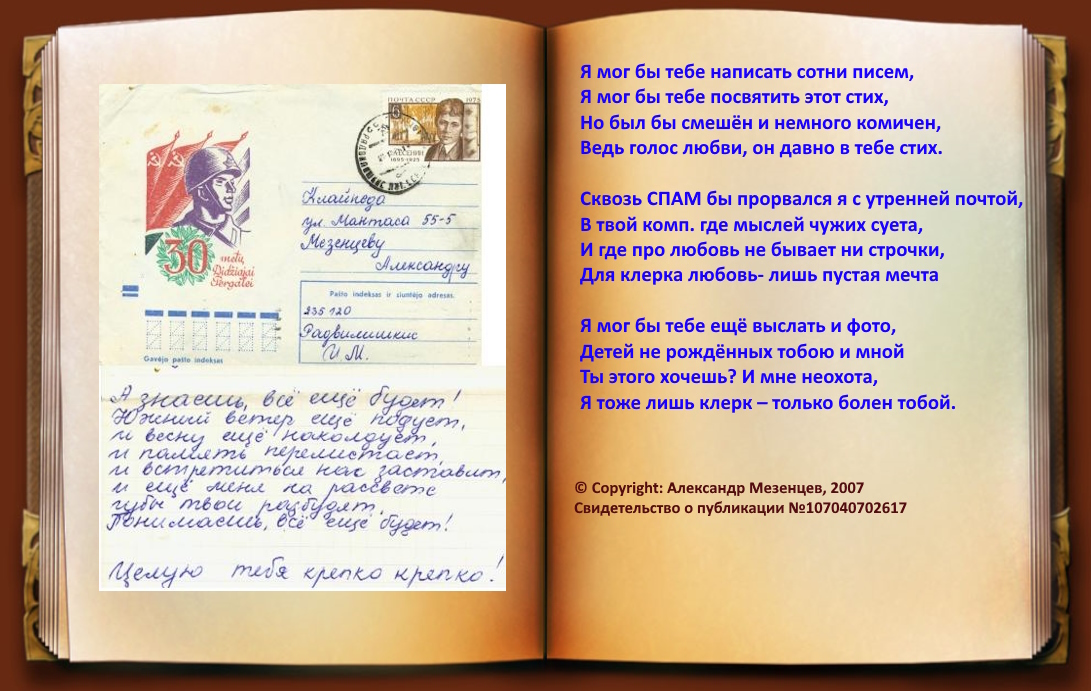 ПОЧТА СССР 1975
6
ЕСЕНИН
1895-1925
30
metų
Didžiajai
Pergalei
Клайпеда
ул. Мантаса 55-5
Мезенцеву
Александру
Pašto indeksas ir siuntėjo adresas.
235120
Радвилишкис
И.М.
Gavėjo pašto indeksas
А знаешь, всё ещё будет!
Южный ветер ещё подует,
и весну ещё наколдует,
и память перелистает,
и встретиться нас заставит,
и ещё меня на рассвете
губы твои разбудят.
Понимаешь, всё ещё будет!
Целую тебя крепко крепко!
Я мог бы тебе написать сотни писем,
Я мог бы тебе посвятить этот стих,
Но был бы смешён и немного комичен,
Ведь голос любви, он давно в тебе стих.
Сквозь СПАМ бы прорвался я с утренней почтой,
В твой комп. где мыслей чужих суета,
И где про любовь не бывает ни строчки,
Для клерка любовь- лишь пустая мечта
Я мог бы тебе ещё выслать и фото,
Детей не рождённых тобою и мной
Ты этого хочешь? И мне неохота,
Я тоже лишь клерк – только болен тобой.
© Copyright: Александр Мезенцев, 2007
Свидетельство о публикации №107040702617